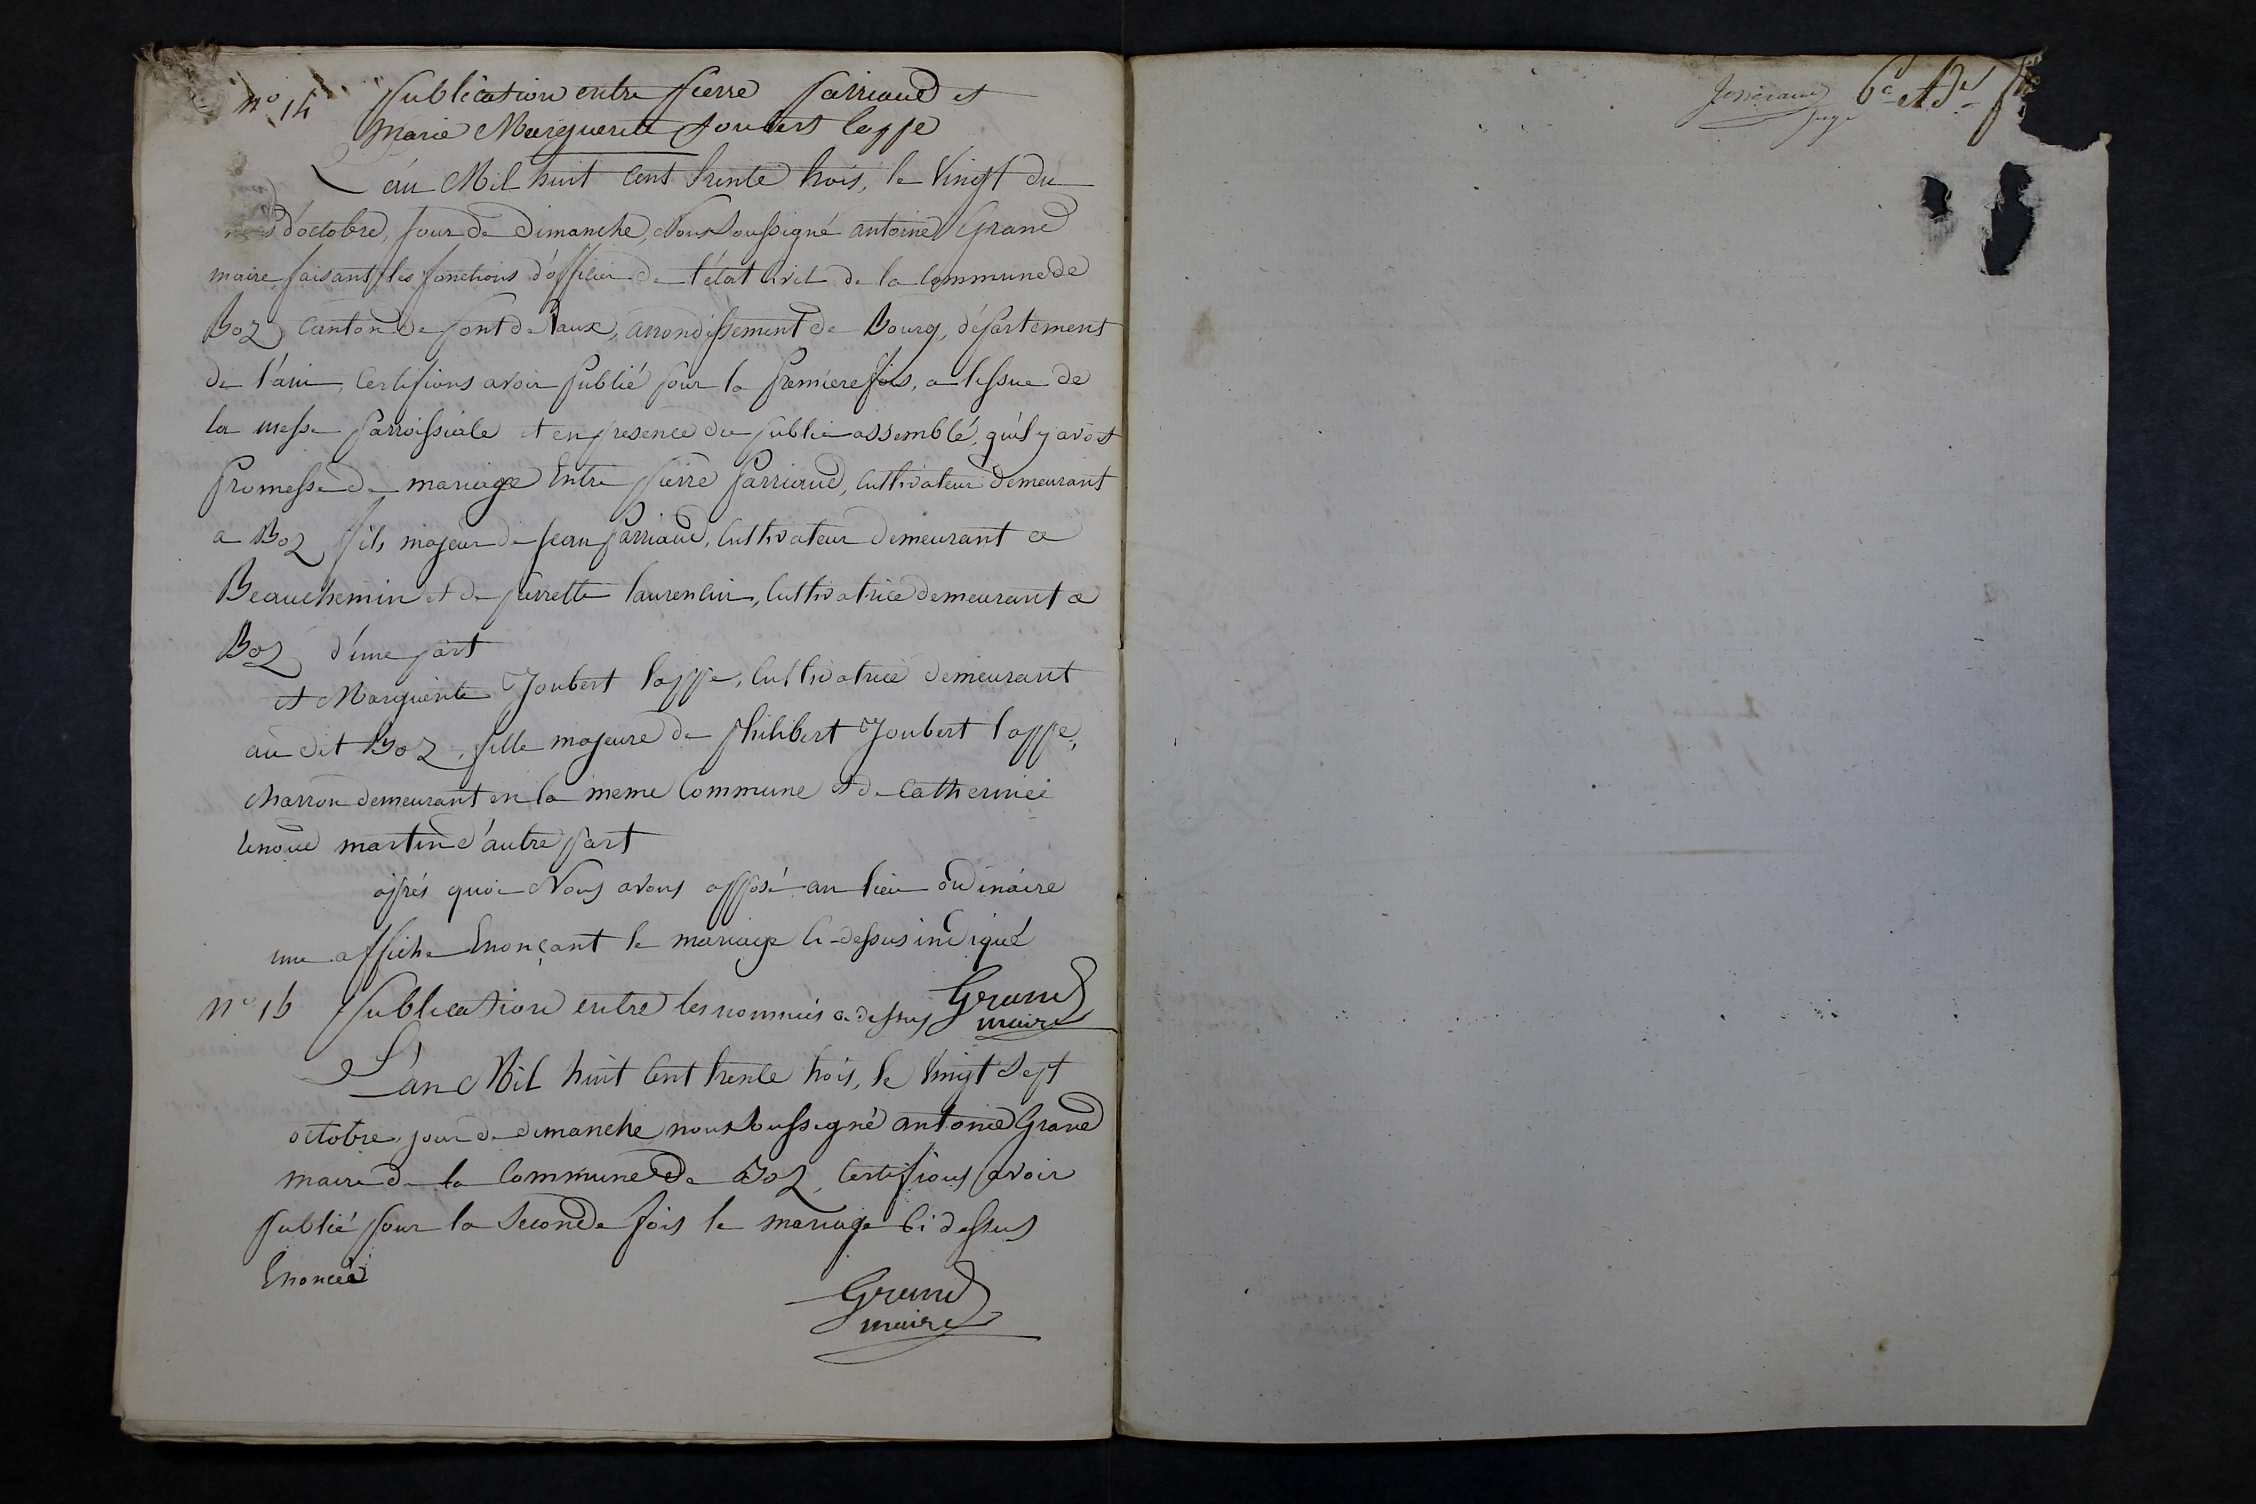 n° 14 Publication entre pierre parriaud et
marie Marguerite Joubert loppe
L'an Mil huit Cent trente trois, le Vingt du
mois d'octobre, jour de Dimanche, Nous Soussigné antoine Grand
maire faisant les fonctions d'officier de l'état Civil de la commune de
Boz, Canton de pont de Vaux, arrondissement de Bourg, département
de l'ain, Certifions avoir publié pour la premiere fois, a l'issue de
la messe parroissiale et en presence du public assemblé, qu'il y avoit
promesse de mariage Entre pierre parriaud, Cultivateur demeurant
a Boz, fils majeur de jean parriaud, Cultivateur demeurant a
Beauchemin et de pierrette laurencin, Cultivatrice demeurant a
Boz d'une part
et Marguerite Joubert loppe, Cultivatrice demeurant
au dit Boz, fille majeure de philibert Joubert loppe,
charron demeurant en la meme Commune et de Catherine
Renoud martin d'autre part
après quoi Nous avons apposé au lieu ordinaire
une affiche Enonçant le mariage Ci-dessus indiqué
Grand
maire
n° 15 Publication entre les nommés ci dessus
L'an Mil huit Cent trente trois, le Vingt Sept
octobre, jour de dimanche nous Soussigné antoine Grand
maire de la Commune de Boz, Certifions avoir
publié pour la Seconde fois le mariage Ci dessus
Enoncée
Grand
maire
juge
6e et Der